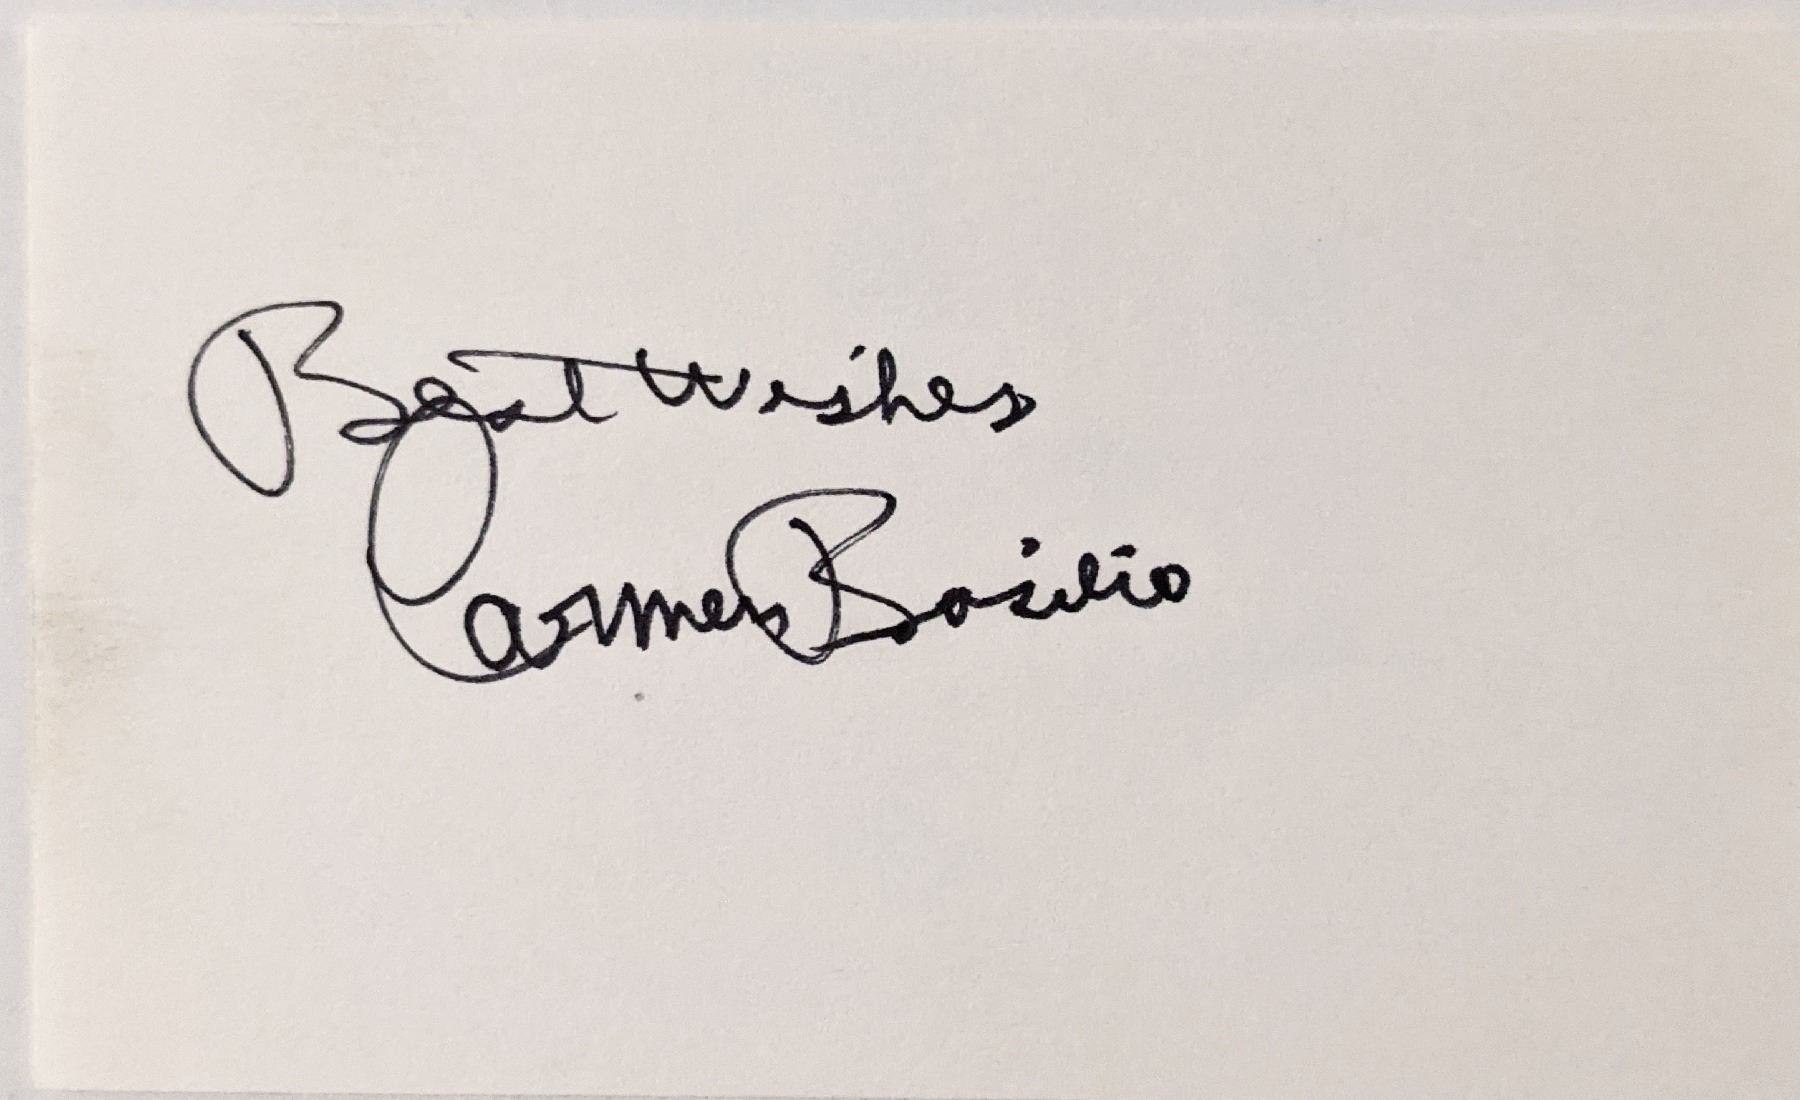 Best Wishes
Carmen Basilio